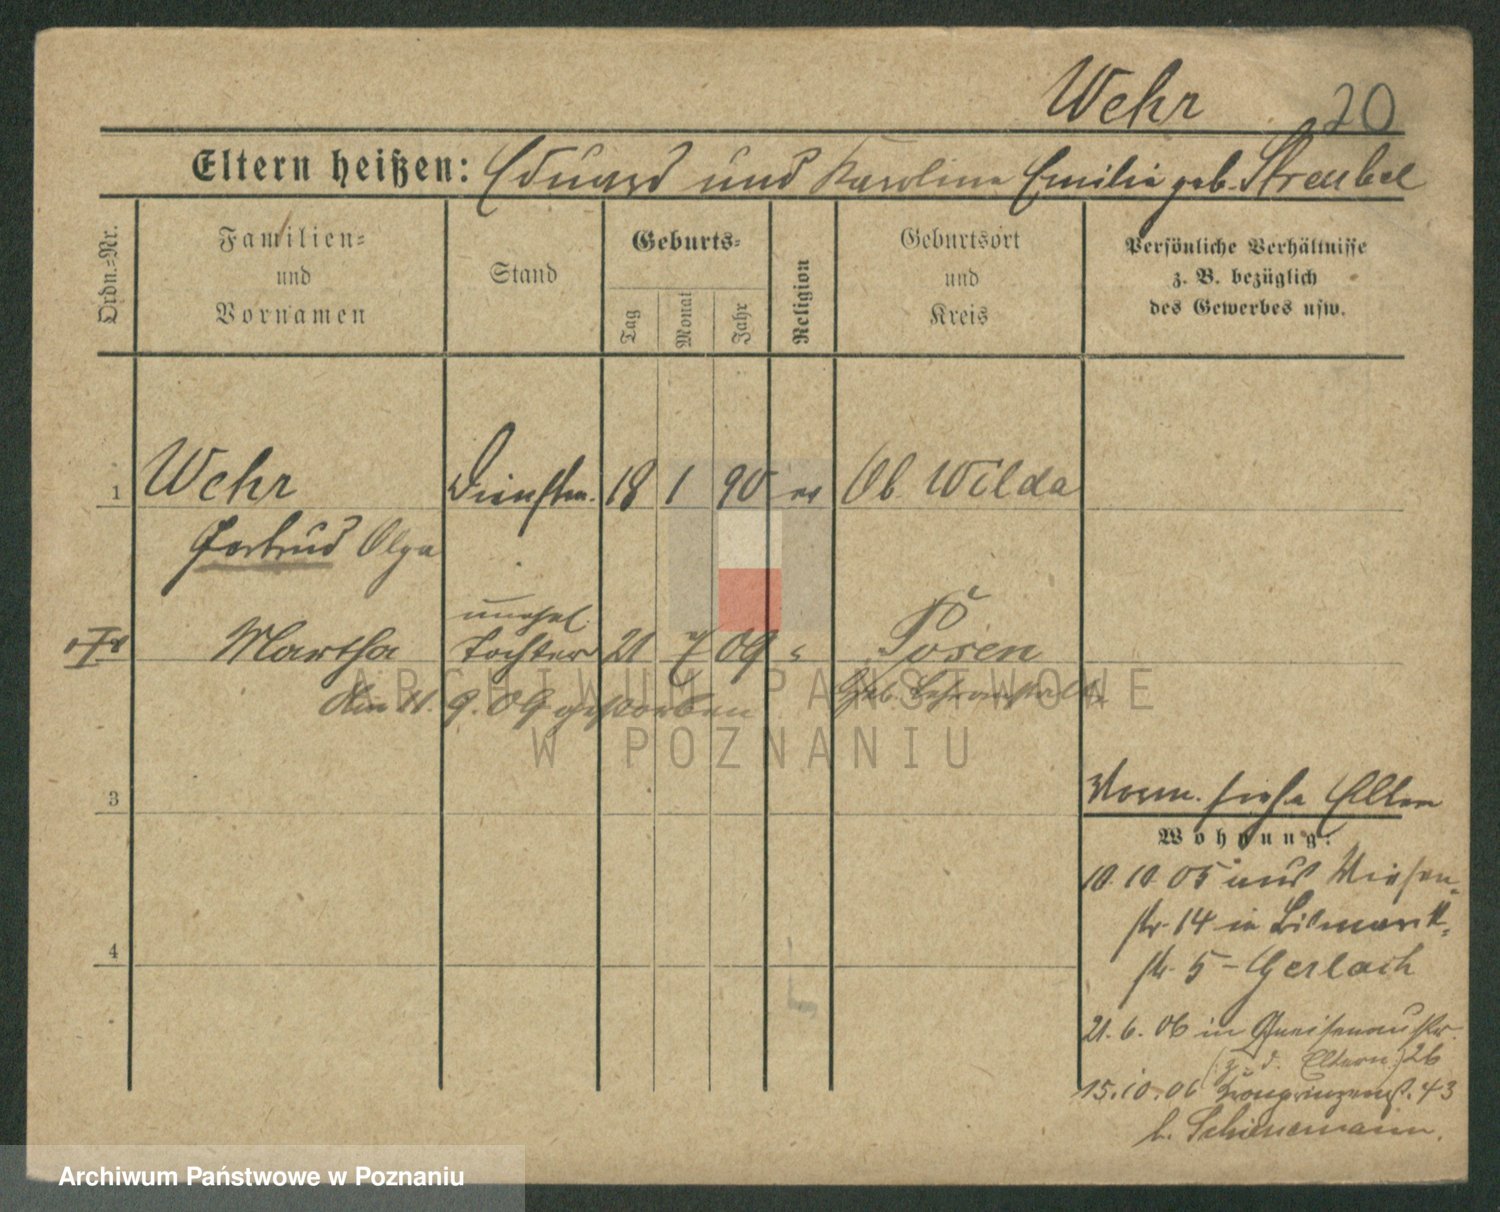 Wehr 20
Eltern heißen: Eduard und Karoline Emilie geb. Streubel
Ordn.-Nr.
Familien-
und
Vornamen
Stand
Geburts-
Tag
Monat
Jahr
Religion
Geburtsort
und
Kreis
Persönliche Verhältnisse
z. B. bezüglich
des Gewerbes usw.
1 Wehr Dienstm. 18 1 90 ev Ob. Wilda
Gertrud Olga
unehel.
Martha Tochter 21 7 09 " Posen
Am 11. 9. 09 gestorben Geb.
3
Vorm. siehe Eltern
Wohnung:
10. 10. 05 aus Wiesen-
str. 14 in Bismarck-
str. 5 - Gerlach
4
21. 6. 06 in Gneisenaustr.
(z. d. Eltern) 26
15. 10. 06 Kronprinzenst. 43
b. Schünemann.
ARCHIWUM PAŃSTWOWE
W POZNANIU
Archiwum Państwowe w Poznaniu